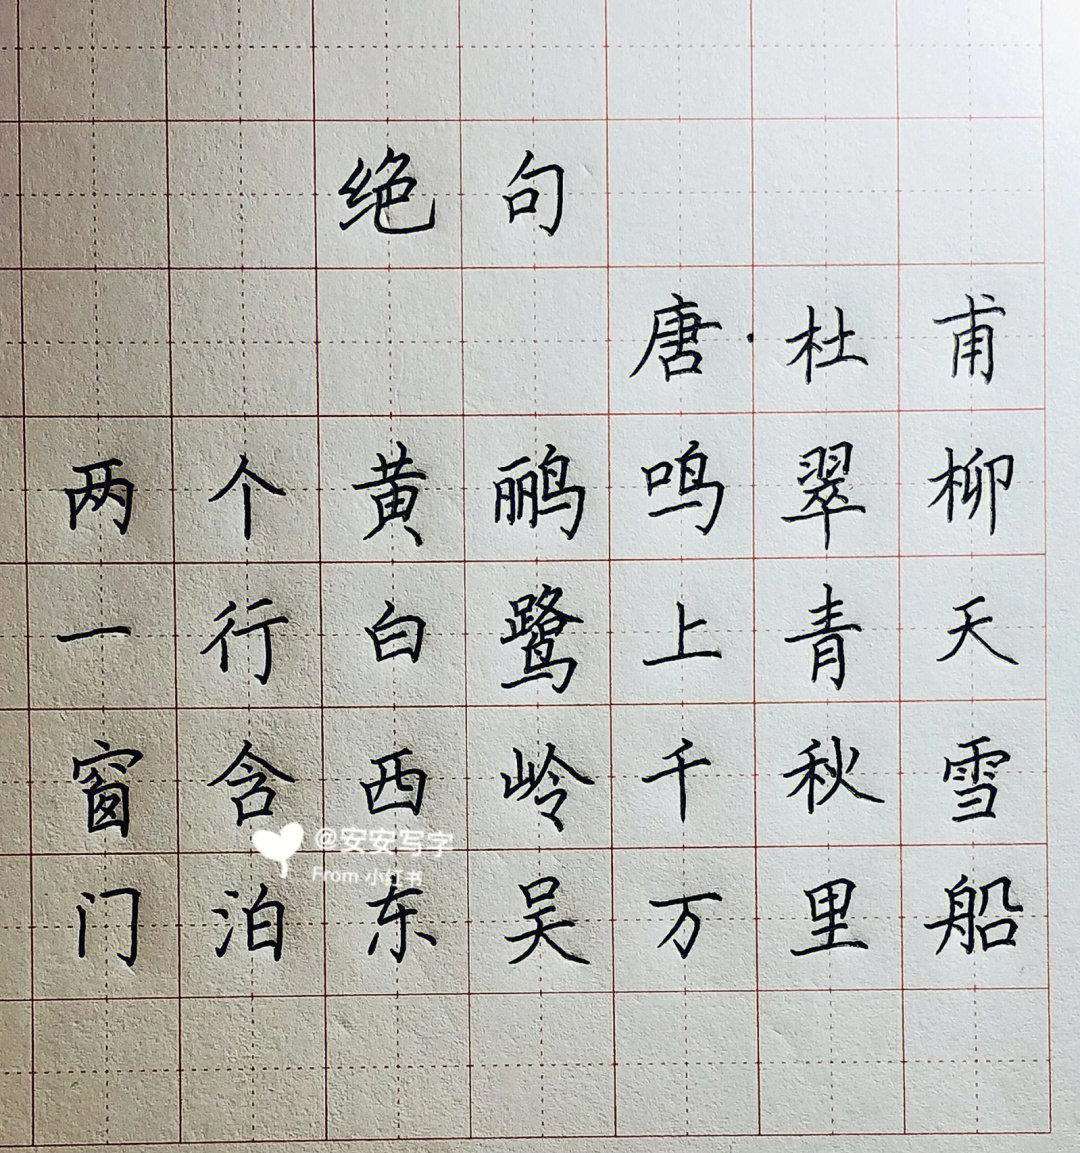 绝句
唐·杜甫
两个黄鹂鸣翠柳
一行白鹭上青天
窗含西岭千秋雪
@安安写字
From 小红书
门泊东吴万里船